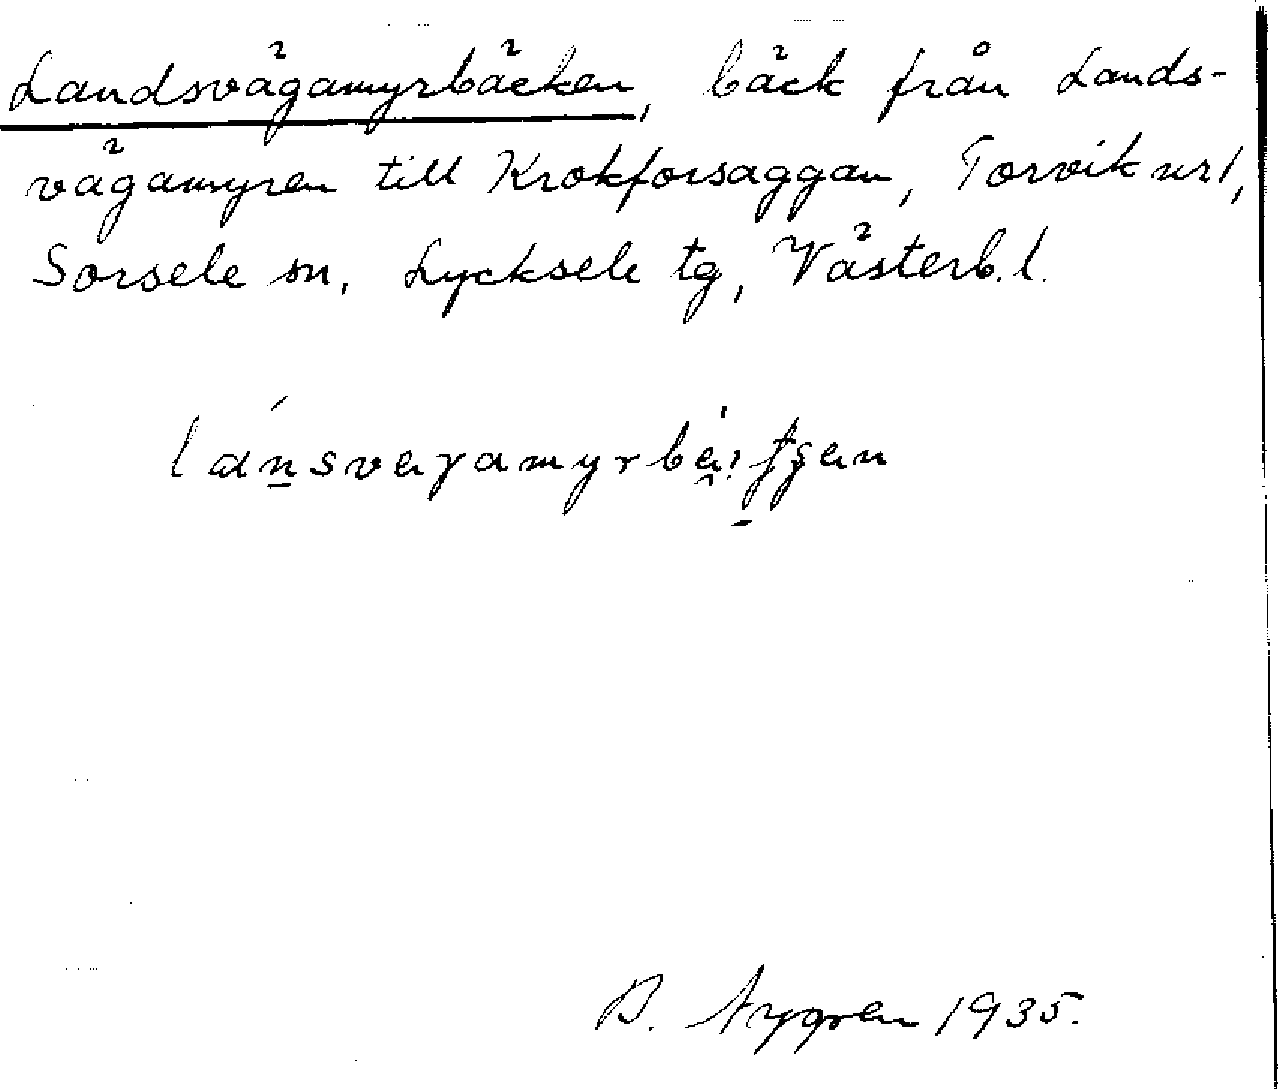 Landsvägamyrbäcken, bäck från Lands-
vägamyren till Krokforsaggan, Torvik nr 1,
Sorsele sn, Lycksele tg, Västerb. l.
B. Nygren 1935.